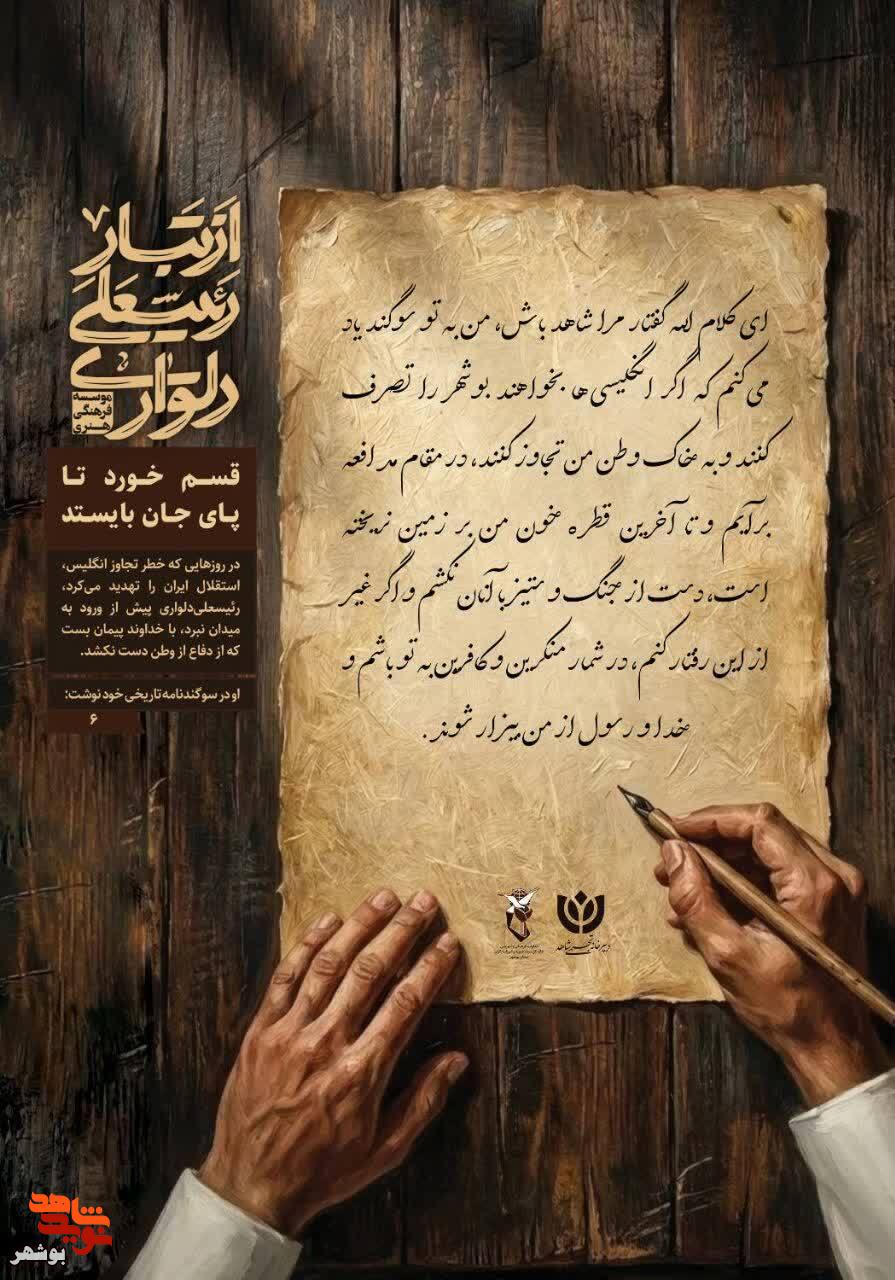 از تبار
رئیسعلی
دلواری
موسسه
فرهنگی
هنری
قسم خورد تا
پای جان بایستد
در روزهایی که خطر تجاوز انگلیس،
استقلال ایران را تهدید می‌کرد،
رئیسعلی‌دلواری پیش از ورود به
میدان نبرد، با خداوند پیمان بست
که از دفاع از وطن دست نکشد.
او در سوگندنامه تاریخی خود نوشت:
۶
ای کلام الله گفتار مرا شاهد باش، من به تو سوگند یاد
می کنم که اگر انگلیسی ها بخواهند بوشهر را تصرف
کنند و به خاک وطن من تجاوز کنند، در مقام مدافعه
برآیم و تا آخرین قطره خون من بر زمین نریخته
است، دست از جنگ و ستیز با آنان نکشم و اگر غیر
از این رفتار کنم، در شمار منکرین و کافرین به تو باشم و
خدا و رسول از من بیزار شوند.
نوید شاهد
بوشهر